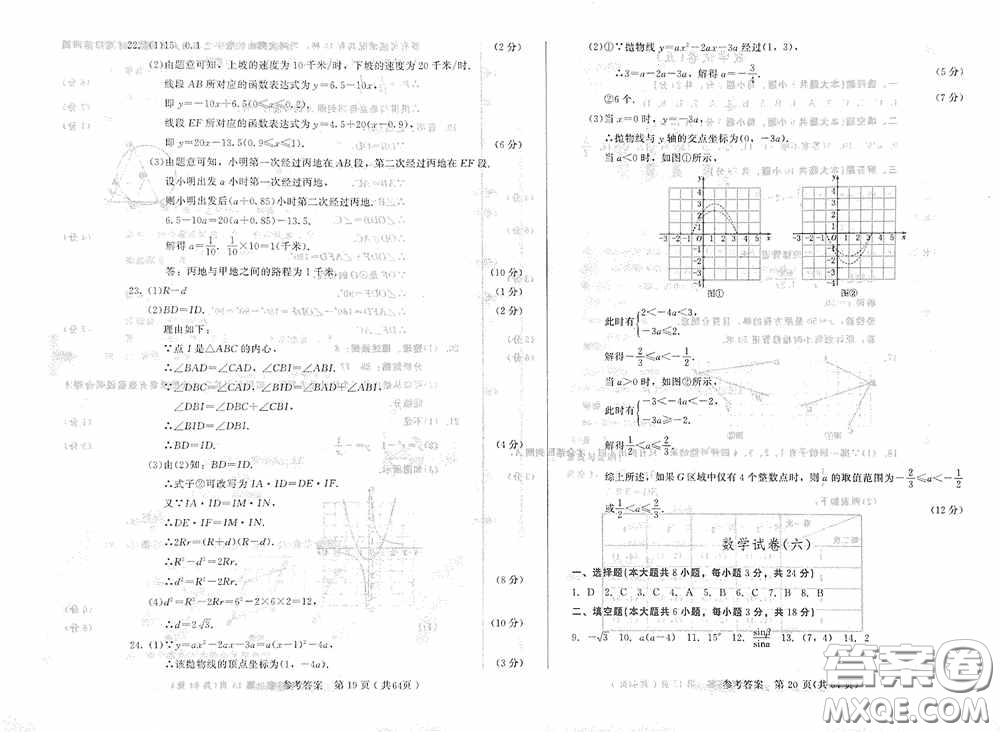 22. (1)15 0.1 (2分)
(2)由题意可知，上坡的速度为10千米/时，下坡的速度为20千米/时.
线段AB所对应的函数表达式为y=6.5-10x，
即y=-10x+6.5(0≤x≤0.2).
线段EF所对应的函数表达式为y=4.5+20(x-0.9).
即y=20x-13.5(0.9≤x≤1). (6分)
(3)由题意可知，小明第一次经过丙地在AB段，第二次经过丙地在EF段.
设小明出发a小时第一次经过丙地，
则小明出发后(a+0.85)小时第二次经过丙地.
6.5-10a=20(a+0.85)-13.5.
解得a=1/10. 1/10×10=1(千米).
答：丙地与甲地之间的路程为1千米. (10分)
23. (1)R-d (1分)
(2)BD=ID. (2分)
理由如下：
∵点I是△ABC的内心，
∴∠BAD=∠CAD，∠CBI=∠ABI.
∵∠DBC=∠CAD，∠BID=∠BAD+∠ABI，
∠DBI=∠DBC+∠CBI，
∴∠BID=∠DBI.
∴BD=ID. (4分)
(3)由(2)知：BD=ID.
∴式子②可改写为IA·ID=DE·IF.
又∵IA·ID=IM·IN，
∴DE·IF=IM·IN.
∴2Rr=(R+d)(R-d).
∴R²-d²=2Rr.
∴d²=R²-2Rr. (8分)
(4)d²=R²-2Rr=6²-2×6×2=12，
∴d=2√3. (10分)
24. (1)∵y=ax²-2ax-3a=a(x-1)²-4a，
∴该抛物线的顶点坐标为(1，-4a). (3分)
参考答案 第19页(共64页)
(2)①∵抛物线y=ax²-2ax-3a经过(1，3)，
∴3=a-2a-3a，解得a=-3/4. (5分)
②6个. (7分)
(3)当x=0时，y=-3a，
∴抛物线与y轴的交点坐标为(0，-3a).
当a<0时，如图①所示，
图① 图②
此时有{2<-4a<3，
-3a≤2.
解得-2/3≤a<-1/2.
当a>0时，如图②所示，
此时有{-3<-4a<-2，
-3a≥-2.
解得1/2<a≤2/3.
综上所述，如果G区域中仅有4个整数点时，则a的取值范围为-2/3≤a<-1/2
或1/2<a≤2/3. (12分)
数学试卷(六)
一、选择题(本大题共8小题，每小题3分，共24分)
1. D 2. C 3. C 4. A 5. B 6. C 7. C 8. C
二、填空题(本大题共6小题，每小题3分，共18分)
9. -√3 10. a(a-4) 11. 15° 12. sinβ/sinα 13. (7，4) 14. 2
参考答案 第20页(共64页)
答案圈
MXQE.COM